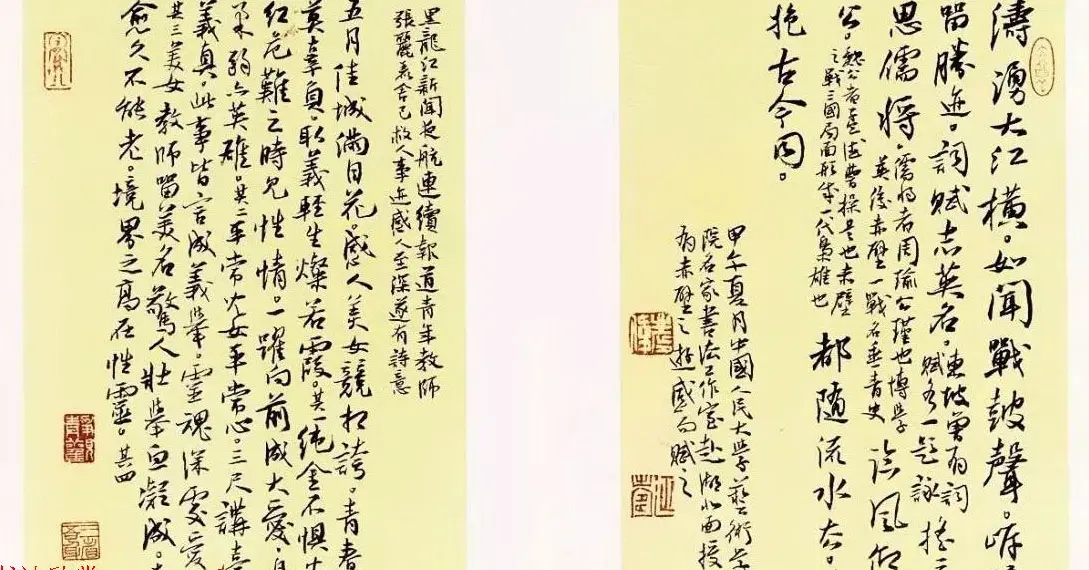 濤湧大江橫。如聞戰鼓聲。
留勝迹。詞賦志英名。東坡曾有詞賦各一題詠
思儒將。儒將者周瑜公瑾也博學英俊赤壁一戰名垂青史
公。魏公者孟德曹操是也赤壁之戰三國局面形成一代梟雄也都隨流水去。
抱古今同。
甲午真月中國人民大學藝術學
院名家書法工作室赴湖北面授
有赤壁之遊感而賦之
黑龍江新聞夜航連續報道青年教師
張麗莉舍己救人事迹感人至深遂有詩意
五月佳城滿目花。感人美女競相誇。青春
莫辜負。取義輕生燦若霞。其一純金不懼
紅危難之時見性情。一躍向前成大愛。
柔弱亦英雄。其二平常少女平常心。三尺講臺
義真。此事皆言成義舉。靈魂深處愛
其三美女教師留美名。驚人壯舉血凝成。
愈久不能老。境界之高在性靈。其四